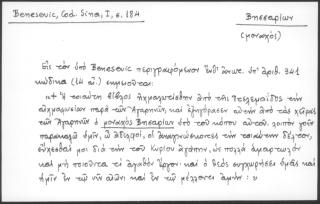 Benesevic, Cod. Sina, I, σ. 184
Βησσαρίων
(μοναχός)
Εἰς τὸν ὑπὸ Benesevic περιγραφόμενον ὑπ' ἀριθ. 341
κώδικα (14 αἰ.) σημειοῦται:
Ἡ τοιαύτη βίβλος ἀπὸ τῆς Πτολεμαΐδος τὴν
αἰχμαλωσίαν παρὰ τῶν Ἀγαρηνῶν, καὶ ἐξηγόρασεν αὐτὴν ἀπὸ τὰς χεῖρας
τῶν Ἀγαρηνῶν ὁ μοναχὸς Βησσαρίων ἀπὸ τὸν κόπον αὐτοῦ. λοιπὸν
παρακαλῶ ὑμῖν, ὦ ἀδελφοί, οἱ ἀναγινώσκοντες τὴν τοιαύτην δέλτον,
εὔχεσθαί μοι διὰ τὴν τοῦ Κυρίου ἀγάπην, ὡς πολλὰ ἁμαρτωλὸν
καὶ μὴ ποιοῦντα τι ἀγαθὸν ἔργον· καὶ ὁ θεὸς συγχωρήσει ὑμᾶς καὶ
ἡμῖν ἐν τῷ νῦν αἰῶνι καὶ ἐν τῷ μέλλοντι ἀμήν: